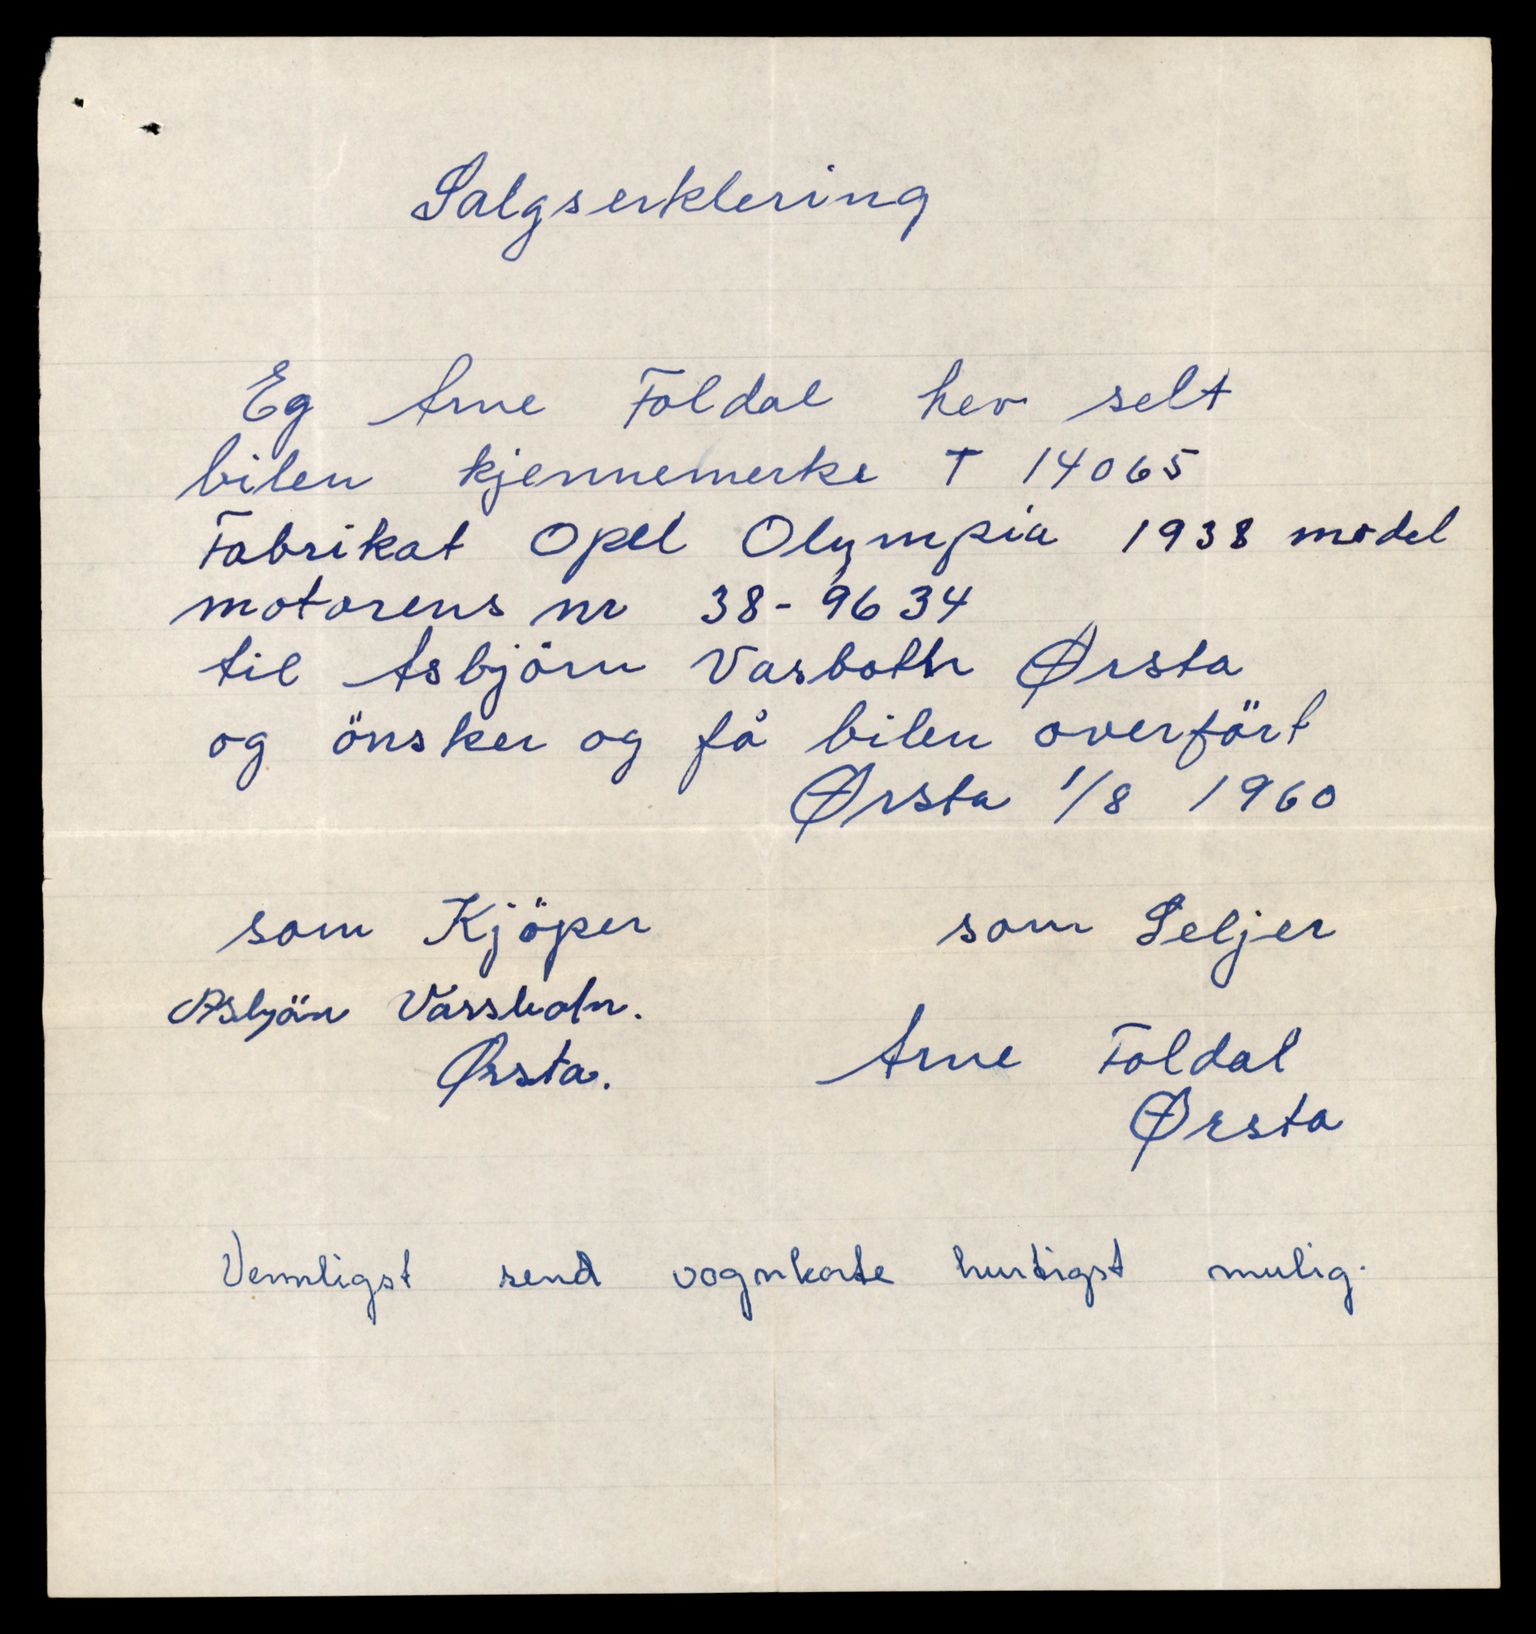 Salgserklering
Eg Arne Foldal hev selt
bilen kjennemerke T 14065
Fabrikat Opel Olympia 1938 model
motorens nr 38-9634
til Asbjörn Vasbotn Ørsta
og önsker og få bilen overfört
Ørsta 1/8 1960
som Kjöper
som Seljer
Asbjön Vassbotn.
Ørsta.
Arne Foldal
Ørsta
Vennligst send vognkorte hurtigst mulig.